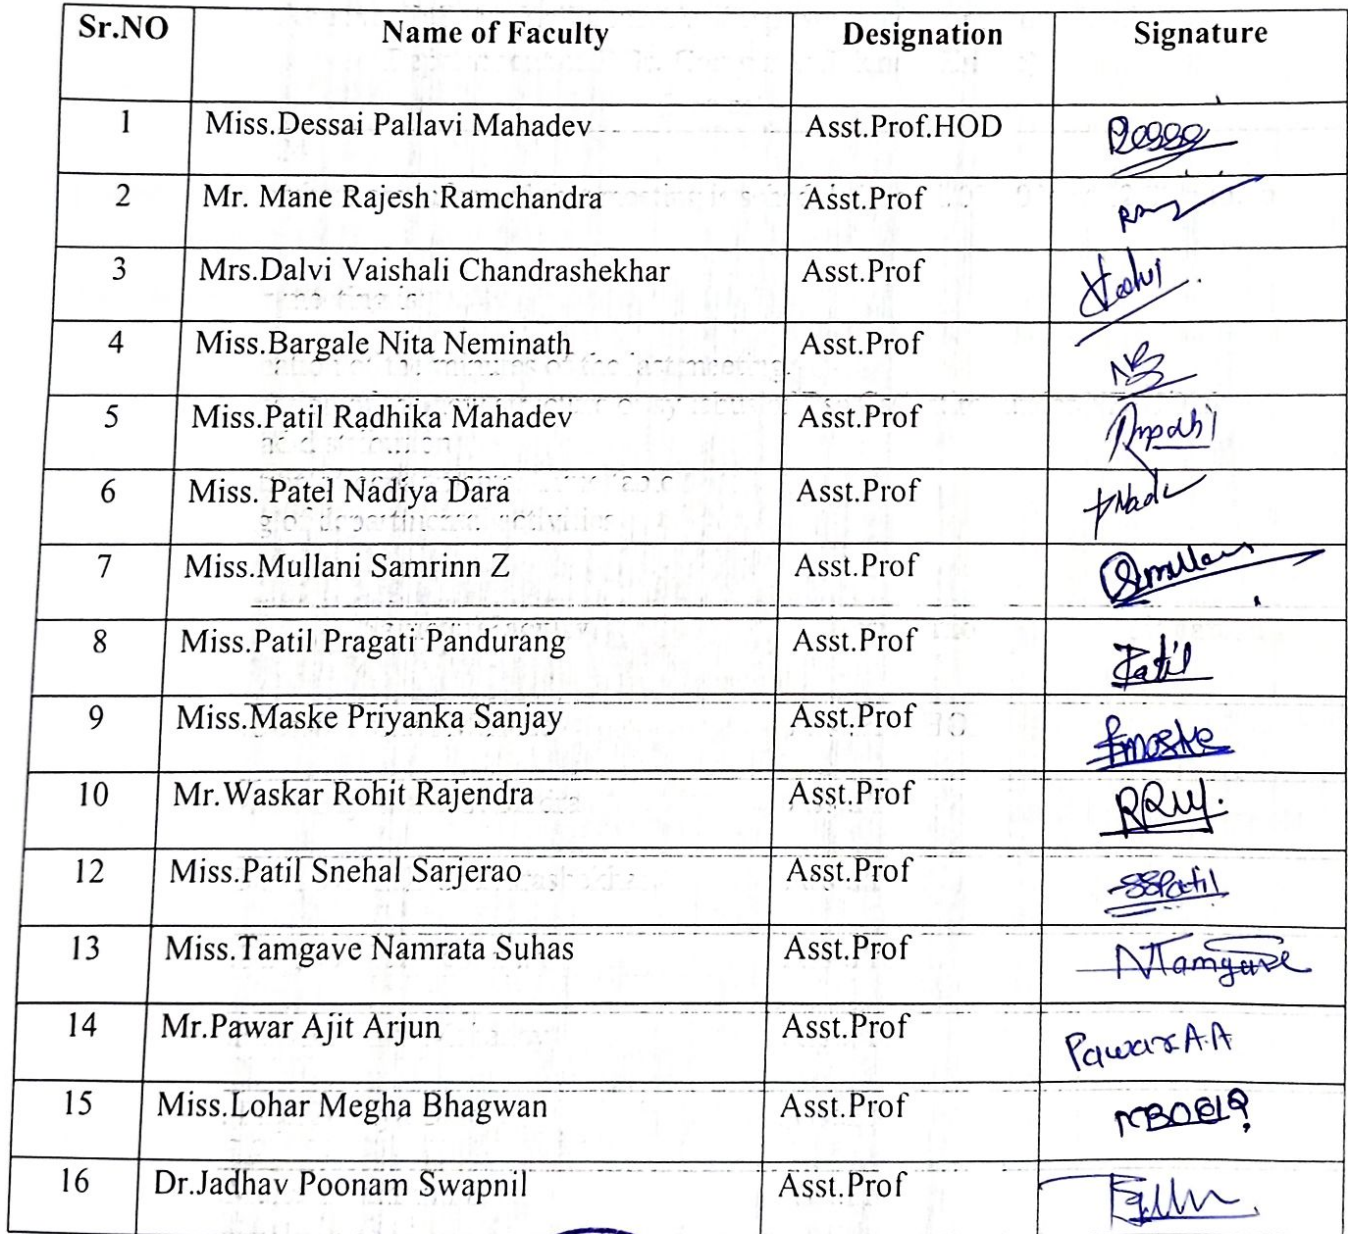 Sr.NO Name of Faculty Designation Signature
1 Miss.Dessai Pallavi Mahadev Asst.Prof.HOD
2 Mr. Mane Rajesh Ramchandra Asst.Prof
3 Mrs.Dalvi Vaishali Chandrashekhar Asst.Prof
4 Miss.Bargale Nita Neminath Asst.Prof
5 Miss.Patil Radhika Mahadev Asst.Prof
6 Miss. Patel Nadiya Dara Asst.Prof
7 Miss.Mullani Samrinn Z Asst.Prof
8 Miss.Patil Pragati Pandurang Asst.Prof Patil
9 Miss.Maske Priyanka Sanjay Asst.Prof Pmaske
10 Mr.Waskar Rohit Rajendra Asst.Prof
12 Miss.Patil Snehal Sarjerao Asst.Prof SSPatil
13 Miss.Tamgave Namrata Suhas Asst.Prof NTamgave
14 Mr.Pawar Ajit Arjun Asst.Prof Pawar A.A
15 Miss.Lohar Megha Bhagwan Asst.Prof
16 Dr.Jadhav Poonam Swapnil Asst.Prof